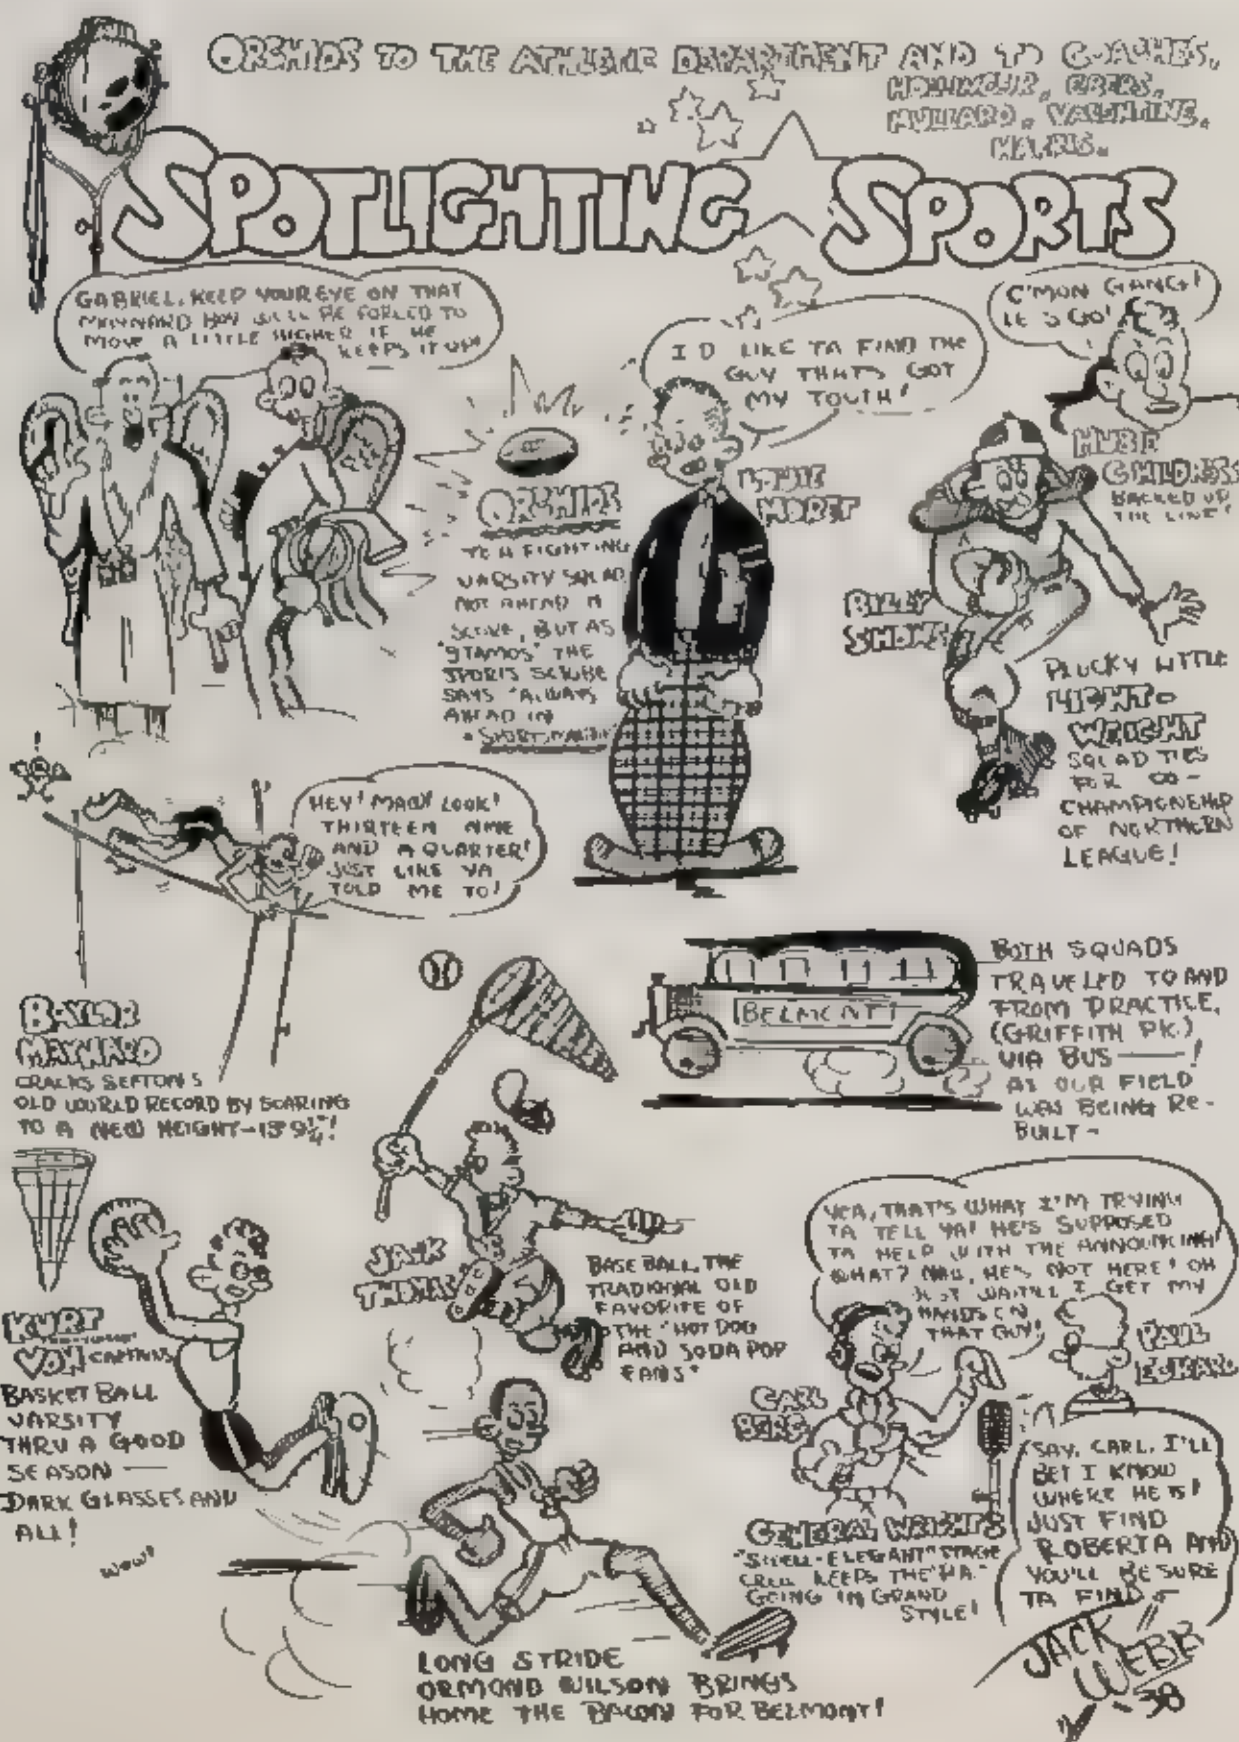 ORCHIDS TO THE ATHLETIC DEPARTMENT AND TO COACHES,
VALENTINE,
HARRIS.
SPOTLIGHTING SPORTS
GABRIEL, KEEP YOUR EYE ON THAT
MAYNARD BOY WE'LL BE FORCED TO
MOVE A LITTLE HIGHER IF HE
KEEPS IT UP!
I'D LIKE TA FIND THE
GUY THAT'S GOT
MY TOUTH!
C'MON GANG!
LE'S GO!
CHILDRESS
BACKED UP
THE LINE!
ORCHIDS
TO A FIGHTING
VARSITY SQUAD
NOT AHEAD IN
SCORE, BUT AS
"STAMOS" THE
SPORTS SCRIBE
SAYS "ALWAYS
AHEAD IN
SPORTSMANSHIP
MORET
BILLY
SHOWS
PLUCKY LITTLE
LIGHT-
WEIGHT
SQUAD TIES
FOR CO-
CHAMPIONSHIP
OF NORTHERN
LEAGUE!
HEY! MAQY LOOK!
THIRTEEN NINE
AND A QUARTER!
JUST LIKE YA
TOLD ME TO!
BAYLOR
MAYNARD
CRACKS SEFTON'S
OLD WORLD RECORD BY SOARING
TO A NEW HEIGHT-13'9¼"!
BELMONT
BOTH SQUADS
TRAVELED TO AND
FROM PRACTICE,
(GRIFFITH PK.)
VIA BUS —!
AS OUR FIELD
WAS BEING RE-
BUILT -
JACK
THOMAS
BASE BALL, THE
TRADIONAL OLD
FAVORITE OF
THE "HOT DOG
AND SODA POP
FANS"
KURT
VON CAPTAINS
BASKET BALL
VARSITY
THRU A GOOD
SEASON —
DARK GLASSES AND
ALL!
WOW!
YEA, THAT'S WHAT I'M TRYING
TA TELL YA! HE'S SUPPOSED
TA HELP WITH THE ANNOUNCING!
WHAT? NAW, HE'S NOT HERE! OH
JUST WAIT'LL I GET MY
HANDS ON
THAT GUY!
CARL
BERG
PAUL
GENERAL WRIGHT'S
"SWELL-ELEGANT" STAGE
CREW KEEPS THE "P.A."
GOING IN GRAND
STYLE!
SAY, CARL, I'LL
BET I KNOW
WHERE HE IS!
JUST FIND
ROBERTA AND
YOU'LL BE SURE
TA FIND
JACK
WEBB
-38
LONG STRIDE
ORMOND WILSON BRINGS
HOME THE BACON FOR BELMONT!